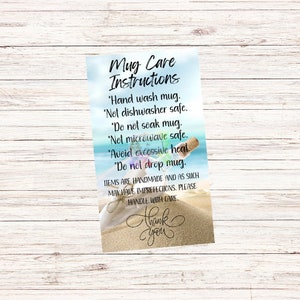 Mug Care
Instructions
*Hand wash mug.
*Not dishwasher safe.
*Do not soak mug.
*Not microwave safe.
*Avoid excessive heat.
*Do not drop mug.
ITEMS ARE HANDMADE AND AS SUCH
MAY HAVE IMPERFECTIONS. PLEASE
HANDLE WITH CARE.
thank
you